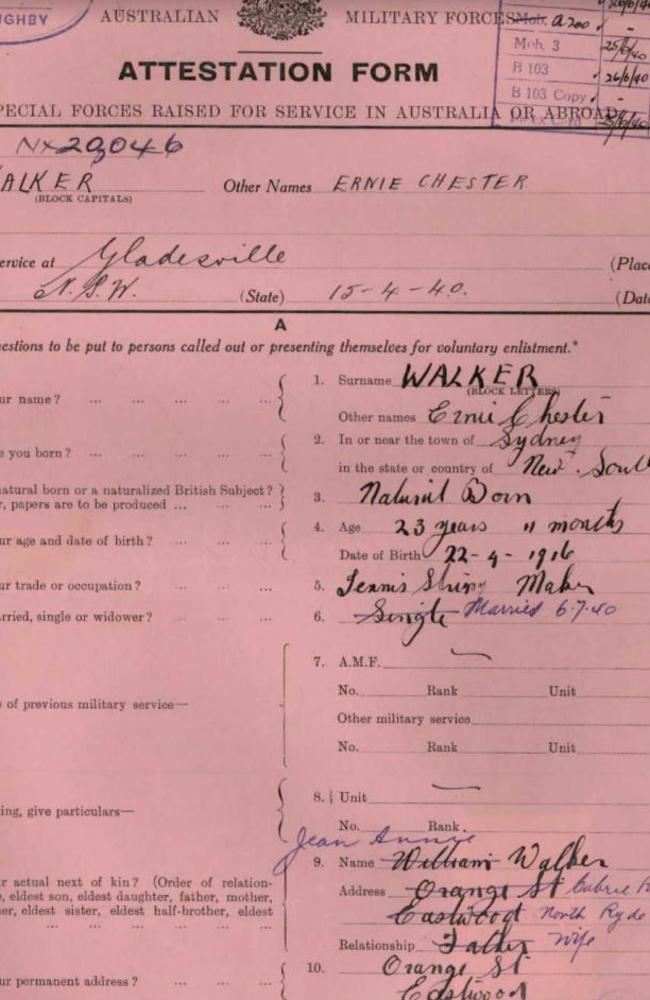 UGHBY
AUSTRALIAN MILITARY FORCES
Mob. A 200
Mob. 3 25/6/40
B 103 26/6/40
B 103 Copy
ATTESTATION FORM
PECIAL FORCES RAISED FOR SERVICE IN AUSTRALIA OR ABROAD
NX20046
ALKER Other Names ERNIE CHESTER
(BLOCK CAPITALS)
ervice at Gladesville (Plac
N.S.W. (State) 15-4-40. (Dat
A
estions to be put to persons called out or presenting themselves for voluntary enlistment.*
1. Surname WALKER
(BLOCK LETTERS)
ur name? ... ... ... ...
Other names Ernie Chester
2. In or near the town of Sydney
e you born? ... ... ... ...
in the state or country of New Sout
natural born or a naturalized British Subject?
r, papers are to be produced ... ... ...
3. Natural Born
4. Age 23 years 11 months
ur age and date of birth? ... ... ...
Date of Birth 22-4-1916
ur trade or occupation? ... ... ... 5. Tennis String Maker
rried, single or widower? ... ... ... 6. Single Married 6.7.40
7. A.M.F.
No. Rank Unit
s of previous military service—
Other military service
No. Rank Unit
8. Unit
ing, give particulars—
No. Rank.
Jean Annie
9. Name William Walker
r actual next of kin? (Order of relation-
Address Orange St
, eldest son, eldest daughter, father, mother,
er, eldest sister, eldest half-brother, eldest
Eastwood North Ryde
... ... ... ... ... ...
Relationship Father Wife
10. Orange St
ur permanent address? ... ... ...
Eastwood